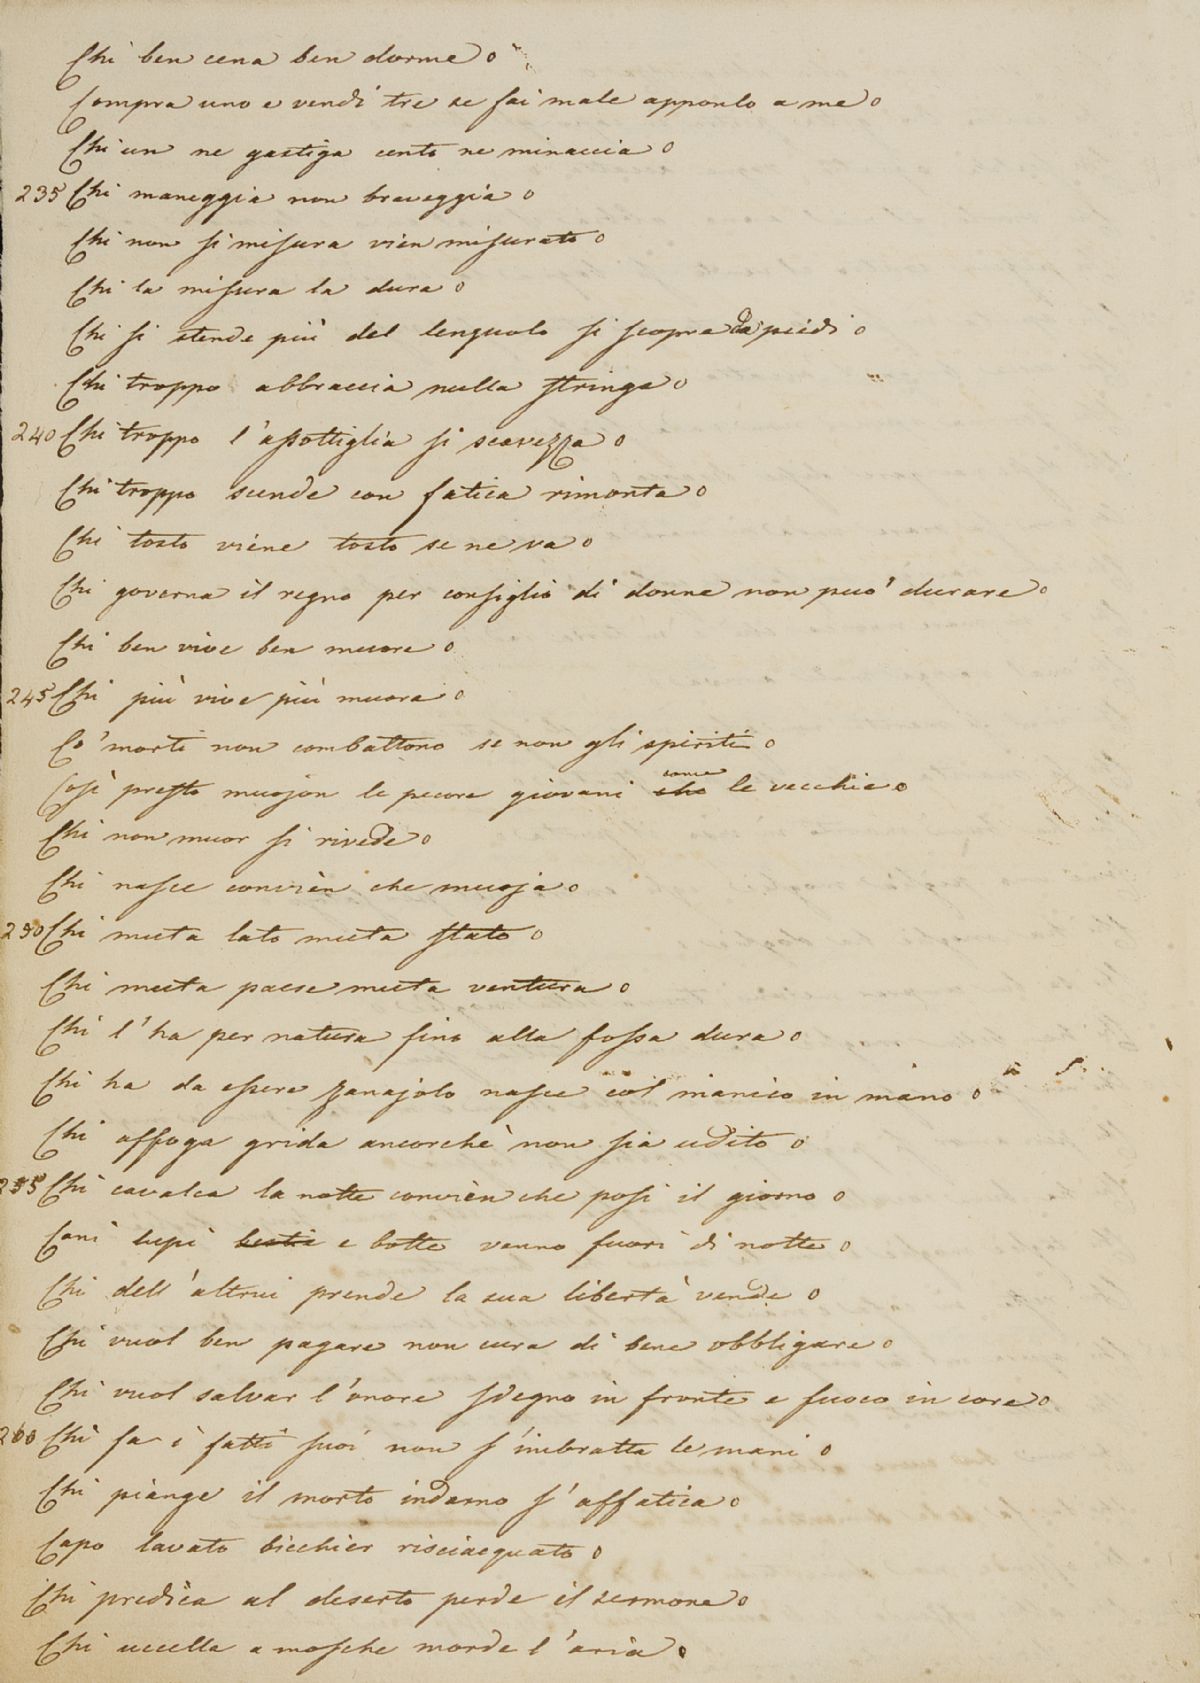 Chi ben cena ben dorme o
Compra uno e vendi tre se fai male apponlo a me o
Chi un ne gastiga cento ne minaccia o
235 Chi maneggia non braveggia o
Chi non si misura vien misurato o
Chi la misura la dura o
Chi si stende più del lenguolo si scopre da piedi o
Chi troppo abbraccia nulla stringe o
240 Chi troppo l'assottiglia si scavezza o
Chi troppo scende con fatica rimonta o
Chi tosto viene tosto se ne va o
Chi governa il regno per consiglio di donne non può durare o
Chi ben vive ben muore o
245 Chi più vive più muore o
Co' morti non combattono se non gli spiriti o
Così presto muojon le pecore giovani che come le vecchie o
Chi non muor si rivede o
Chi nasce convièn che muoja o
250 Chi muta lato muta stato o
Chi muta paese muta ventura o
Chi l'ha per natura fino alla fossa dura o
Chi ha da essere zanajolo nasce col manico in mano o
Chi affoga grida ancorchè non sia udito o
255 Chi cavalca la notte convièn che posi il giorno o
Cani lupi bestie e botte vanno fuori di notte o
Chi dell'altrui prende la sua libertà vende o
Chi vuol ben pagare non cura di bene obbligare o
Chi vuol salvar l'onore sdegno in fronte e fuoco in core o
260 Chi fa i fatti suoi non s'imbratta le mani o
Chi piange il morto indarno s'affatica o
Capo lavato bicchier risciacquato o
Chi predica al deserto perde il sermone o
Chi uccella a mosche morde l'aria o